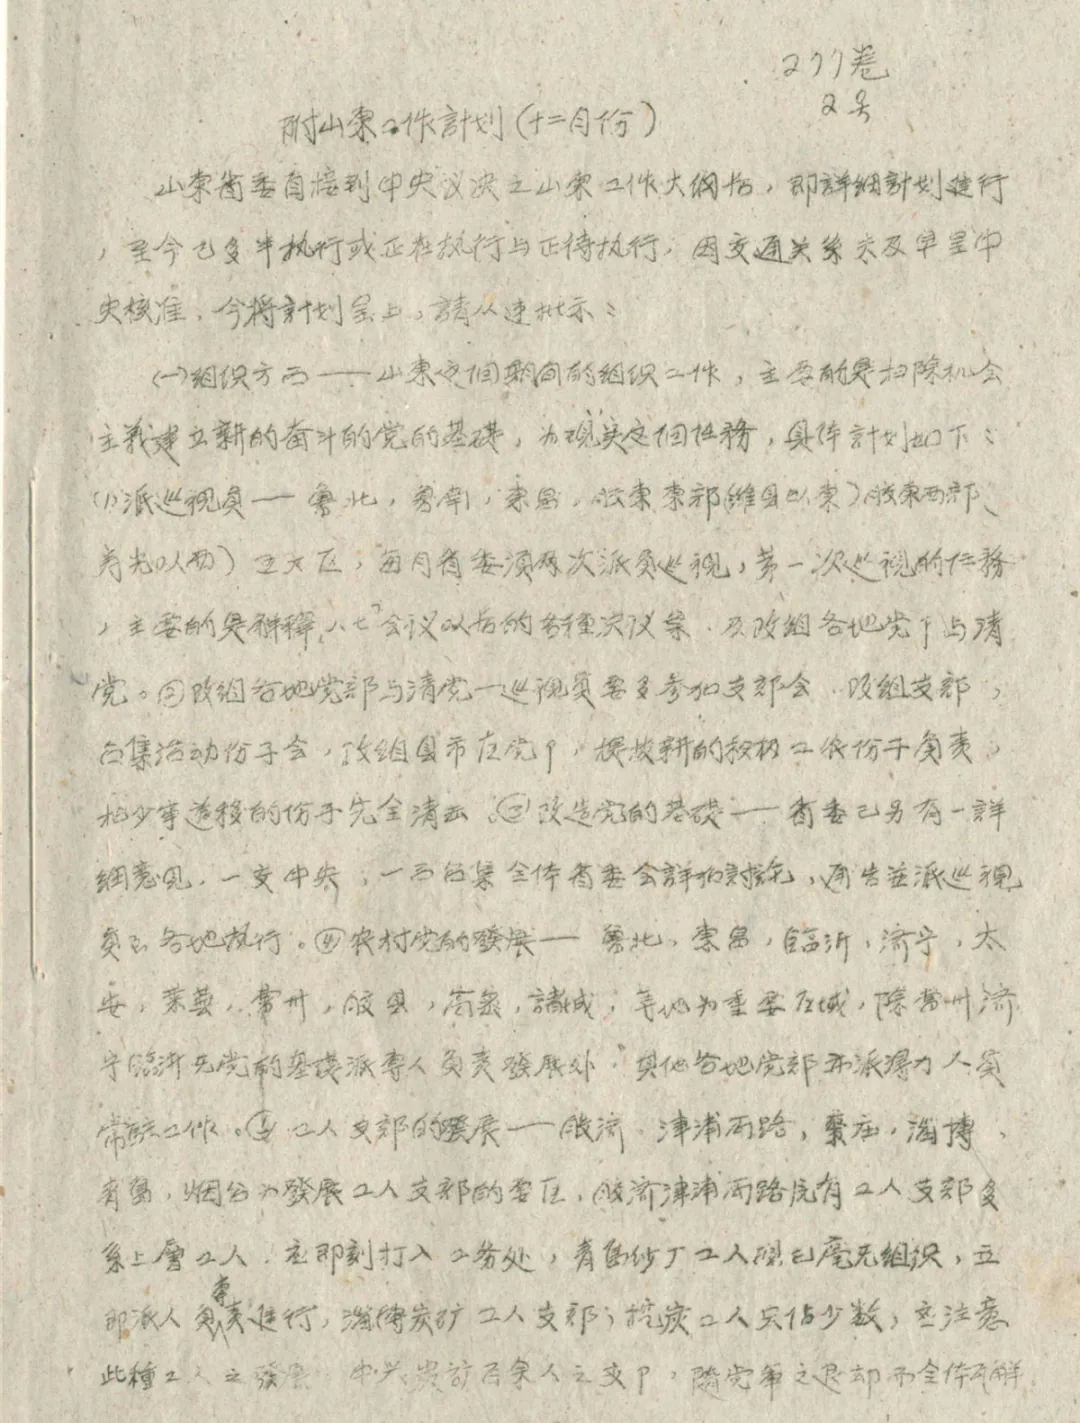 277卷
2号
附山东工作計划(十二月份)
山东省委自接到中央议决之山东工作大纲后，即詳細計划進行
，至今已多半执行或正在执行与正待执行，因交通关系未及早呈中
央核准，今将計划呈上，請从速批示：
(一)组织方面——山东这个期间的组织工作，主要的是扫除机会
主義建立新的奋斗的党的基礎，为现实这个任務，具体計划如下：
(1)派巡视员——鲁北，鲁南，东昌，胶东东部(維县以东)胶东西部、
寿光以西)五大区，每月省委須两次派员巡视，第一次巡视的任務
，主要的是解釋"八七"会议以后的各種决议案，及改组各地党部与清
党。②改组各地党部与清党—巡视员要多参加支部会，改组支部，
召集活动份子会，改组县市区党卩，提拔新的积极工农份子負责，
把少年遗移的份子完全清去。③改造党的基礎——省委已另有一詳
細意见，一交中央，一面召集全体省委会詳細討論，再告並派巡视
员去各地执行。④农村党的發展——鲁北，东昌，临沂，济宁，太
安，莱芜，曹州，胶县，高密，諸城，等地为重要区域，除曹州济
宁临沂无党的基礎派專人負责發展外，其他各地党部亦派得力人员
常駐工作。⑤工人支部的發展——胶济，津浦两路，枣庄，淄博，
青島，烟台为發展工人支部的要区，胶济津浦两路虽有工人支部多
系上層工人，应即刻打入工务处，青島纱厂工人現已毫无组织，立
即派人專負责進行，淄博炭矿工人支部；挖炭工人只佔少数，应注意
此種工人之發展，中兴炭矿百余人之支卩，隨党軍之退却而全体瓦解